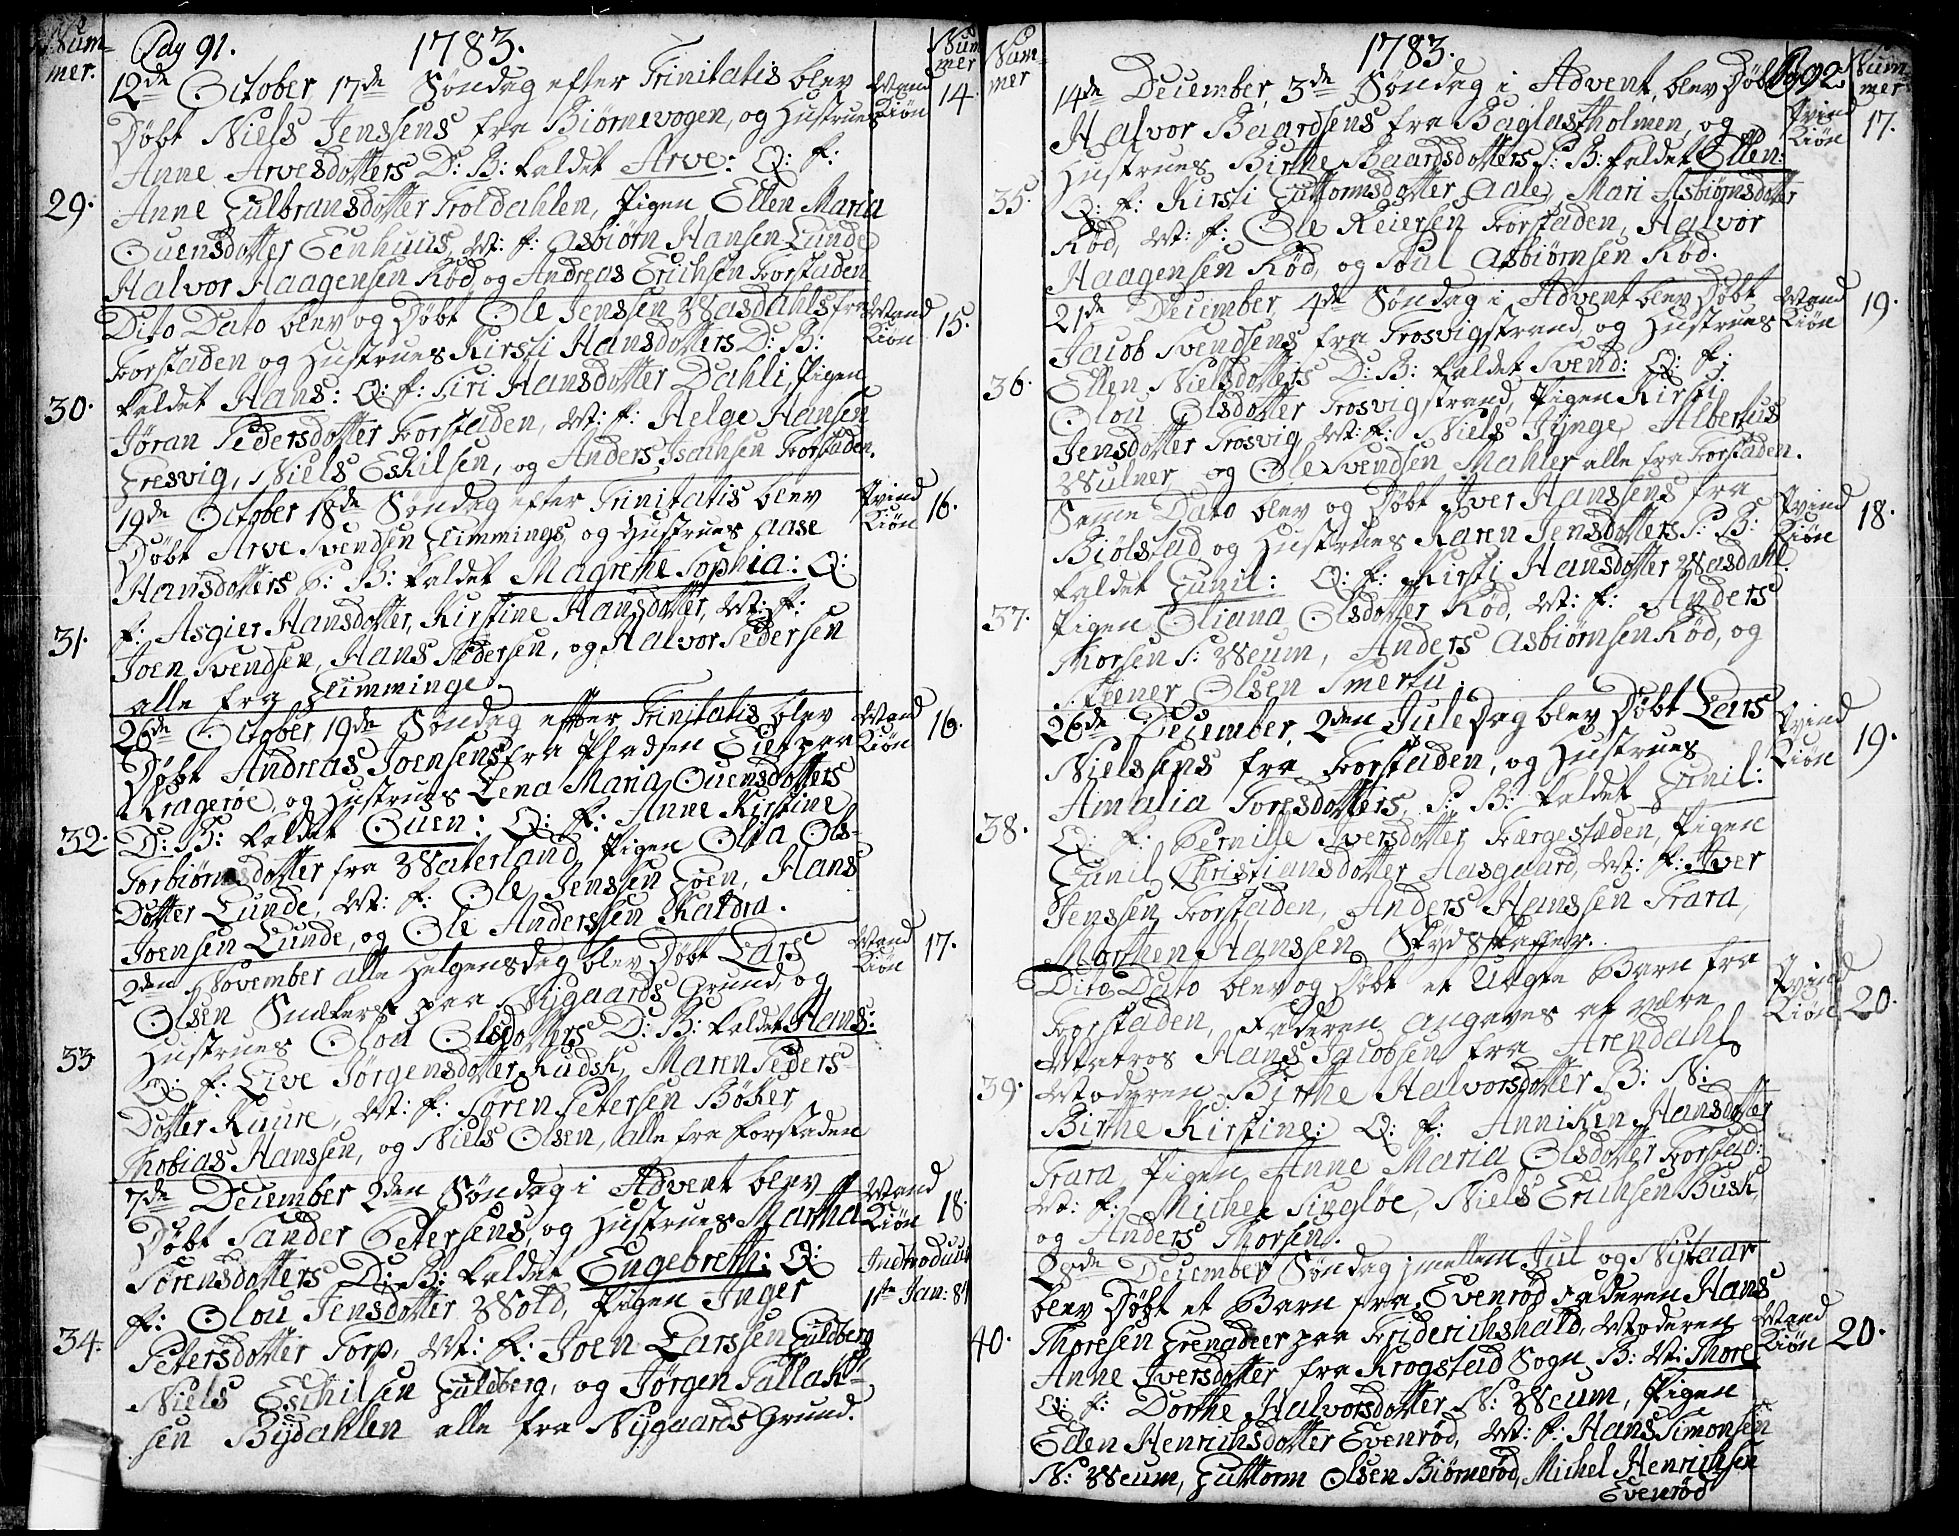 Num-
mer.
Pag 91.
1783.
Num
mer
12de October 17de Søndag efter Trinitatis blev
Mand
Kiøn
14.
Døbt Niels Jenssens fra Biørnevogen, og Hustrues
Anne Arvesdotters D: B: kaldet Arve: Q: F:
29.
Anne Gulbransdotter Troldahlen, Pigen Ellen Maria
Ouensdotter Eenhuus, M: F: Asbiørn Hansen Lunde
Halvor Haagensen Rød og Andreas Erichsen Forstaden
Dito Dato blev og Døbt Ole Jenssen Wasdahls fra
Mand
Kiøn
15.
Forstaden og Hustrues Kirsti Hansdotters D: B:
30.
kaldet Hans: Q: F: Siri Hansdotter Dahli, Pigen
Jøran Pedersdotter Forstaden, M: F: Helge Hansen
Gresvig, Niels Eskilsen, og Anders Isachsen Forstaden.
19de October 18de Søndag efter Trinitatis blev
Qvind
Kiøn
16.
Døbt Arve Svendsen Glimmings og Hustrues Aase
Hansdotters P: B: kaldet Magrethe Sophia: Q:
31.
F: Asgier Hansdotter, Kirstine Hansdotter, M: F:
Joen Svendsen, Hans Pedersen, og Halvor Pedersen
alle fra Glimminge.
26de October 19de Søndag efter Trinitatis blev
Mand
Kiøn
16.
Døbt Andreas Joensens fra Pladsen Eiet paa
Kragerøe, og Hustrues Lena Maria Ouensdotters
32.
D: B: kaldet Ouen: Q: F: Anne Kirstine
Torbiørnsdotter fra Waterland, Pigen Olia Ols-
Dotter Lunde, M: F: Ole Jenssen Goen, Hans
Joensen Lunde, og Ole Anderssen Skaldra.
2den November alle Helgensdag blev Døbt Lars
Mand
Kiøn
17.
Olsen Snekers paa Nygaards Grund, og
Hustrues Olou Olsdotters D: B: kaldet Hans:
33
Q: F: Live Jørgensdotter Rudsk, Maren Peders-
Dotter Ruure, M: F: Søren Petersen Bøker,
Thobias Hanssen, og Niels Olsen, alle fra Forstaden
7de December 2den Søndag i Advent blev
Mand
Kiøn
18.
Døbt Sander Petersens, og Hustrues Martha
Sørensdotters D: B: kaldet Engebreth: Q:
Indtroduut
1ste Jan: 84
F: Olou Jensdotter Wold, Pigen Inger
34.
Petersdotter Torp, M: F: Joen Larssen Guldberg
Niels Eschilsen Guldberg, og Jørgen Tallak-
sen Bydahlen alle fra Nygaards Grund.
Num-
mer
1783.
Pag 92.
Num-
mer
14de December, 3de Søndag i Advent, blev Døbt
Qvind
Kiøn
17.
Halvor Baardsens fra Baglastholmen, og
Hustrues Birthe Baardsdotters P: B: kaldet Ellen:
35.
Q: F: Kirsti Guttormsdotter Aale, Mari Asbiørnsdotter
Rød, M: F: Ole Reiersen Forstaden, Halvor
Haagensen Rød, og Poul Asbiørnsen Rød.
21de December, 4de Søndag i Advent blev Døbt
Mand
Kiøn
19.
Jacob Svendsens fra Trosvigstrand, og Hustrues
36.
Ellen Nielsdotters D: B: kaldet Svend: Q: F:
Olou Olsdotter Trosvigstrand, Pigen Kirsti
Jensdotter Trosvig, M: F: Niels Jynge, Albertus
Wulner, og Ole Svendsen Mahler alle fra Forstaden.
Samme Dato blev og Døbt Iver Hanssens fra
Qvind
Kiøn
18.
Biølstad og Hustrues Karen Jensdotters P: B:
kaldet Gunil: Q: F: Kirsti Hansdotter Wasdahl.
37.
Pigen Oliana Olsdotter Rød, M: F: Anders
Thorsen S: Weum, Anders Asbiørnsen Rød, og
Stener Olsen Smertu.
26de December, 2den Jule Dag blev Døbt Lars
Qvind
Kiøn
19.
Nielssens fra Forstaden, og Hustrues
Amalia Toresdotters, P: B: kaldet Gunil:
38.
Q: F: Pernille Iversdotter Færgestæden, Pigen
Gunil Christiansdotter Aasgaard, M: F: Iver
Jenssen Forstaden, Anders Hanssen Trara,
Morthen Hanssen Skydskaffer.
Dito Dato blev og Døbt et Uægte Barn fra
Qvind
Kiøn
20.
Forstaden, Faderen angaves at være
Matros Hans Jacobsen fra Arendahl
39.
Moderen Birthe Halvorsdotter B: N:
Birthe Kirstine: Q: F: Anniken Hansdotter
Trara Pigen Anne Maria Olsdotter Forstad:
M: F: Michel Singløe, Niels Erichsen Busk,
og Anders Thorsen.
28de December Søndag imellem Jul og Nytaar
blev Døbt et Barn fra Evenrød Faderen Hans
Mand
Kiøn
20.
40.
Thoresen Grenadeer paa Friderichshald, Moderen
Anne Iversdotter fra Krogstad Sogn B: N: Thore
Q: F: Dorthe Halvorsdotter N: Weum, Pigen
Ellen Henrichsdotter Evenrød, M: F: Hans Simonsen
N: Weum, Guttorm Olsen Biørnerød, Michel Henrichsen
Evenrød